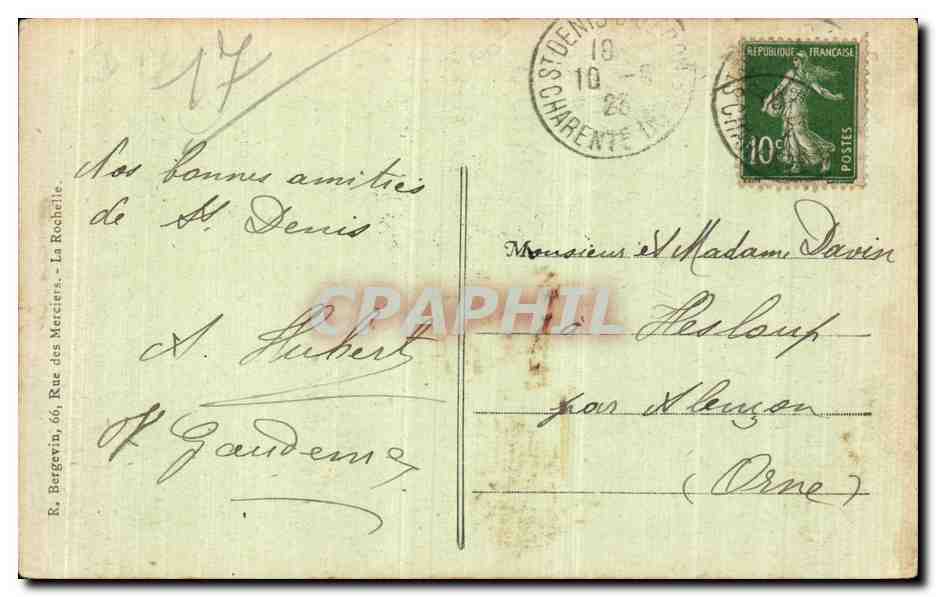 17
ST DENIS D'OLERON
10
10 -5
23
CHARENTE INF
RÉPUBLIQUE FRANÇAISE
10c
POSTES
Nos bonnes amitiés
de St. Denis
A. Hubert
Monsieur et Madame Davin
à Hesloup
par Alençon
(Orne)
R. Bergevin, 66, Rue des Merciers. - La Rochelle.
CPAPHIL